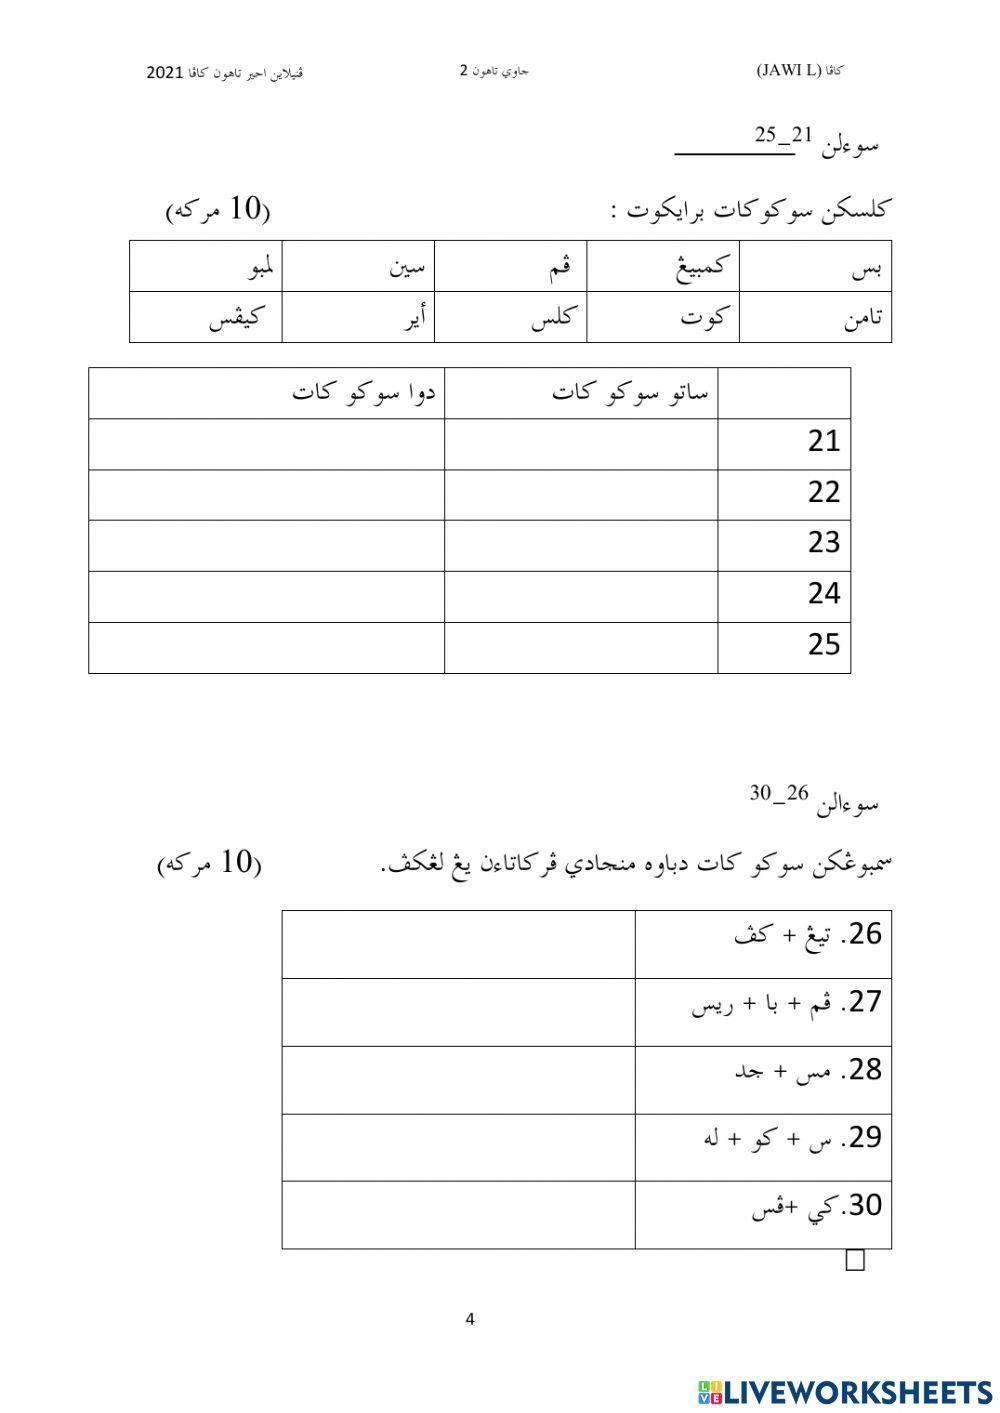 كاڤا (JAWI L) جاوي تاهون 2 ڤنيلاين اخير تاهون كاڤا 2021
سوءلن 21_25
كلسكن سوكوكات برايكوت : (10 مركه)
بس كمبيڠ ڤم سين لمبو
تامن كوت كلس أير كيڤس
ساتو سوكو كات دوا سوكو كات
21
22
23
24
25
سوءالن 26_30
سمبوڠكن سوكو كات دباوه منجادي ڤركاتاءن يڠ لڠكڤ. (10 مركه)
26. تيڠ + كڤ
27. ڤم + با + ريس
28. مس + جد
29. س + كو + له
30.كي +ڤس
4
LIVE LIVEWORKSHEETS